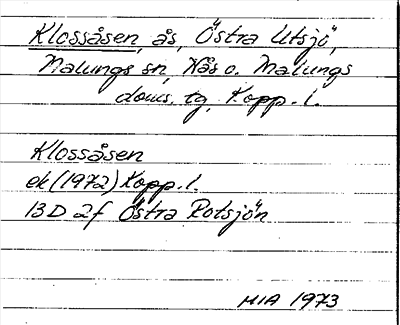 Klossåsen, ås, Östra Utsjö,
Malungs sn, Nås o. Malungs
doms. tg, Kopp. l.
Klossåsen
ek (1972) Kopp. l.
13D 2f Östra Rotsjön
MIA 1973